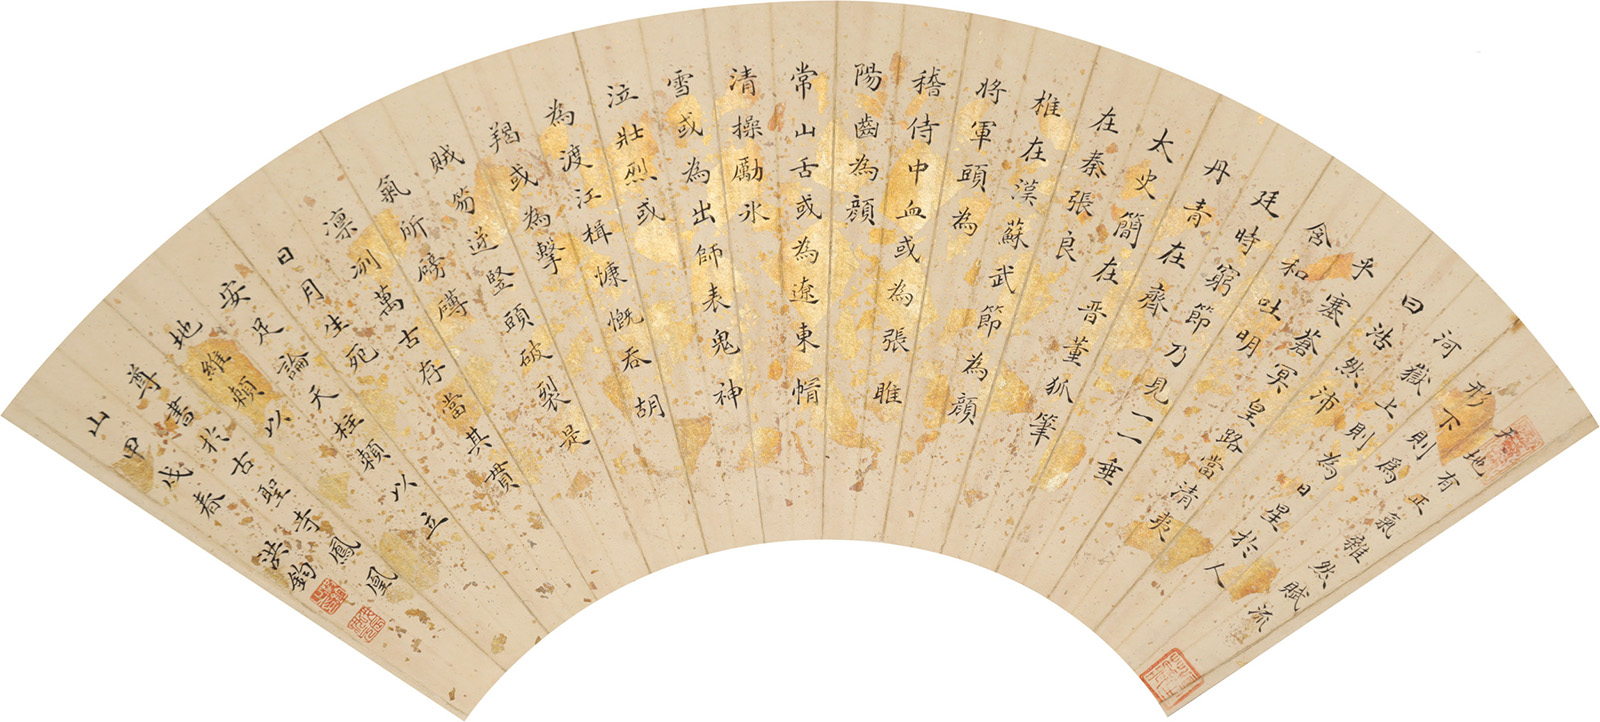 天地有正氣雜然賦流
形下則為
河嶽上則為日星於人
曰浩然沛
乎塞蒼冥皇路當清夷
含和吐明
廷時窮節乃見一一垂
丹青在齊
太史簡在晋董狐筆
在秦張良
椎在漠蘇武節為顏
將軍頭為
稽侍中血或為張睢
陽齒為顏
常山舌或為遼東帽
清操勵氷
雪或為出師表鬼神
泣壯烈或
為渡江楫慷慨吞胡
羯或為擊
賊笏逆竪頭破裂是
氣所磅礴
凛冽萬古存當其貫
日月生死
安足論天柱賴以立
地維賴以
尊書於古聖寺鳳凰
山甲戌春洪鈞